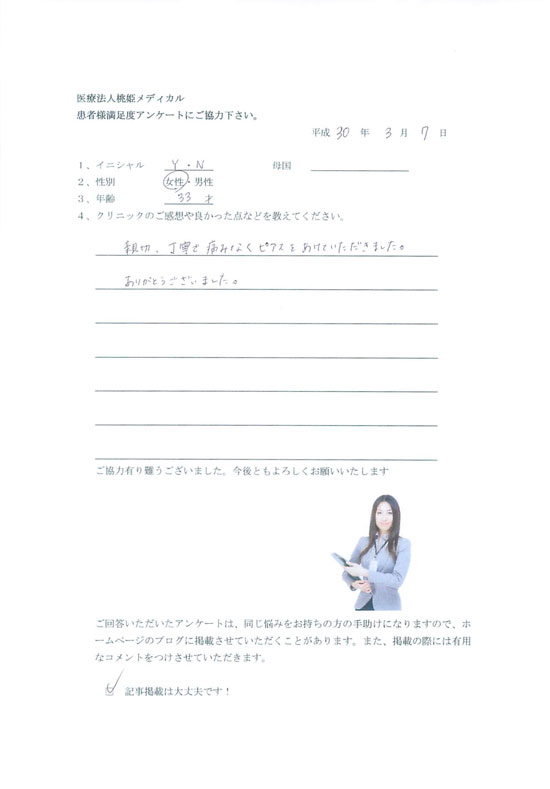 医療法人桃姫メディカル
患者様満足度アンケートにご協力下さい。
平成 30 年 3 月 7 日
1、イニシャル Y・N 母国
2、性別 女性・男性
3、年齢 33 才
4、クリニックのご感想や良かった点などを教えてください。
親切、丁寧で痛みなくピアスをあけていただきました。
ありがとうございました。
ご協力有り難うございました。今後ともよろしくお願いいたします
ご回答いただいたアンケートは、同じ悩みをお持ちの方の手助けになりますので、ホ
ームページのブログに掲載させていただくことがあります。また、掲載の際には有用
なコメントをつけさせていただきます。
記事掲載は大丈夫です！